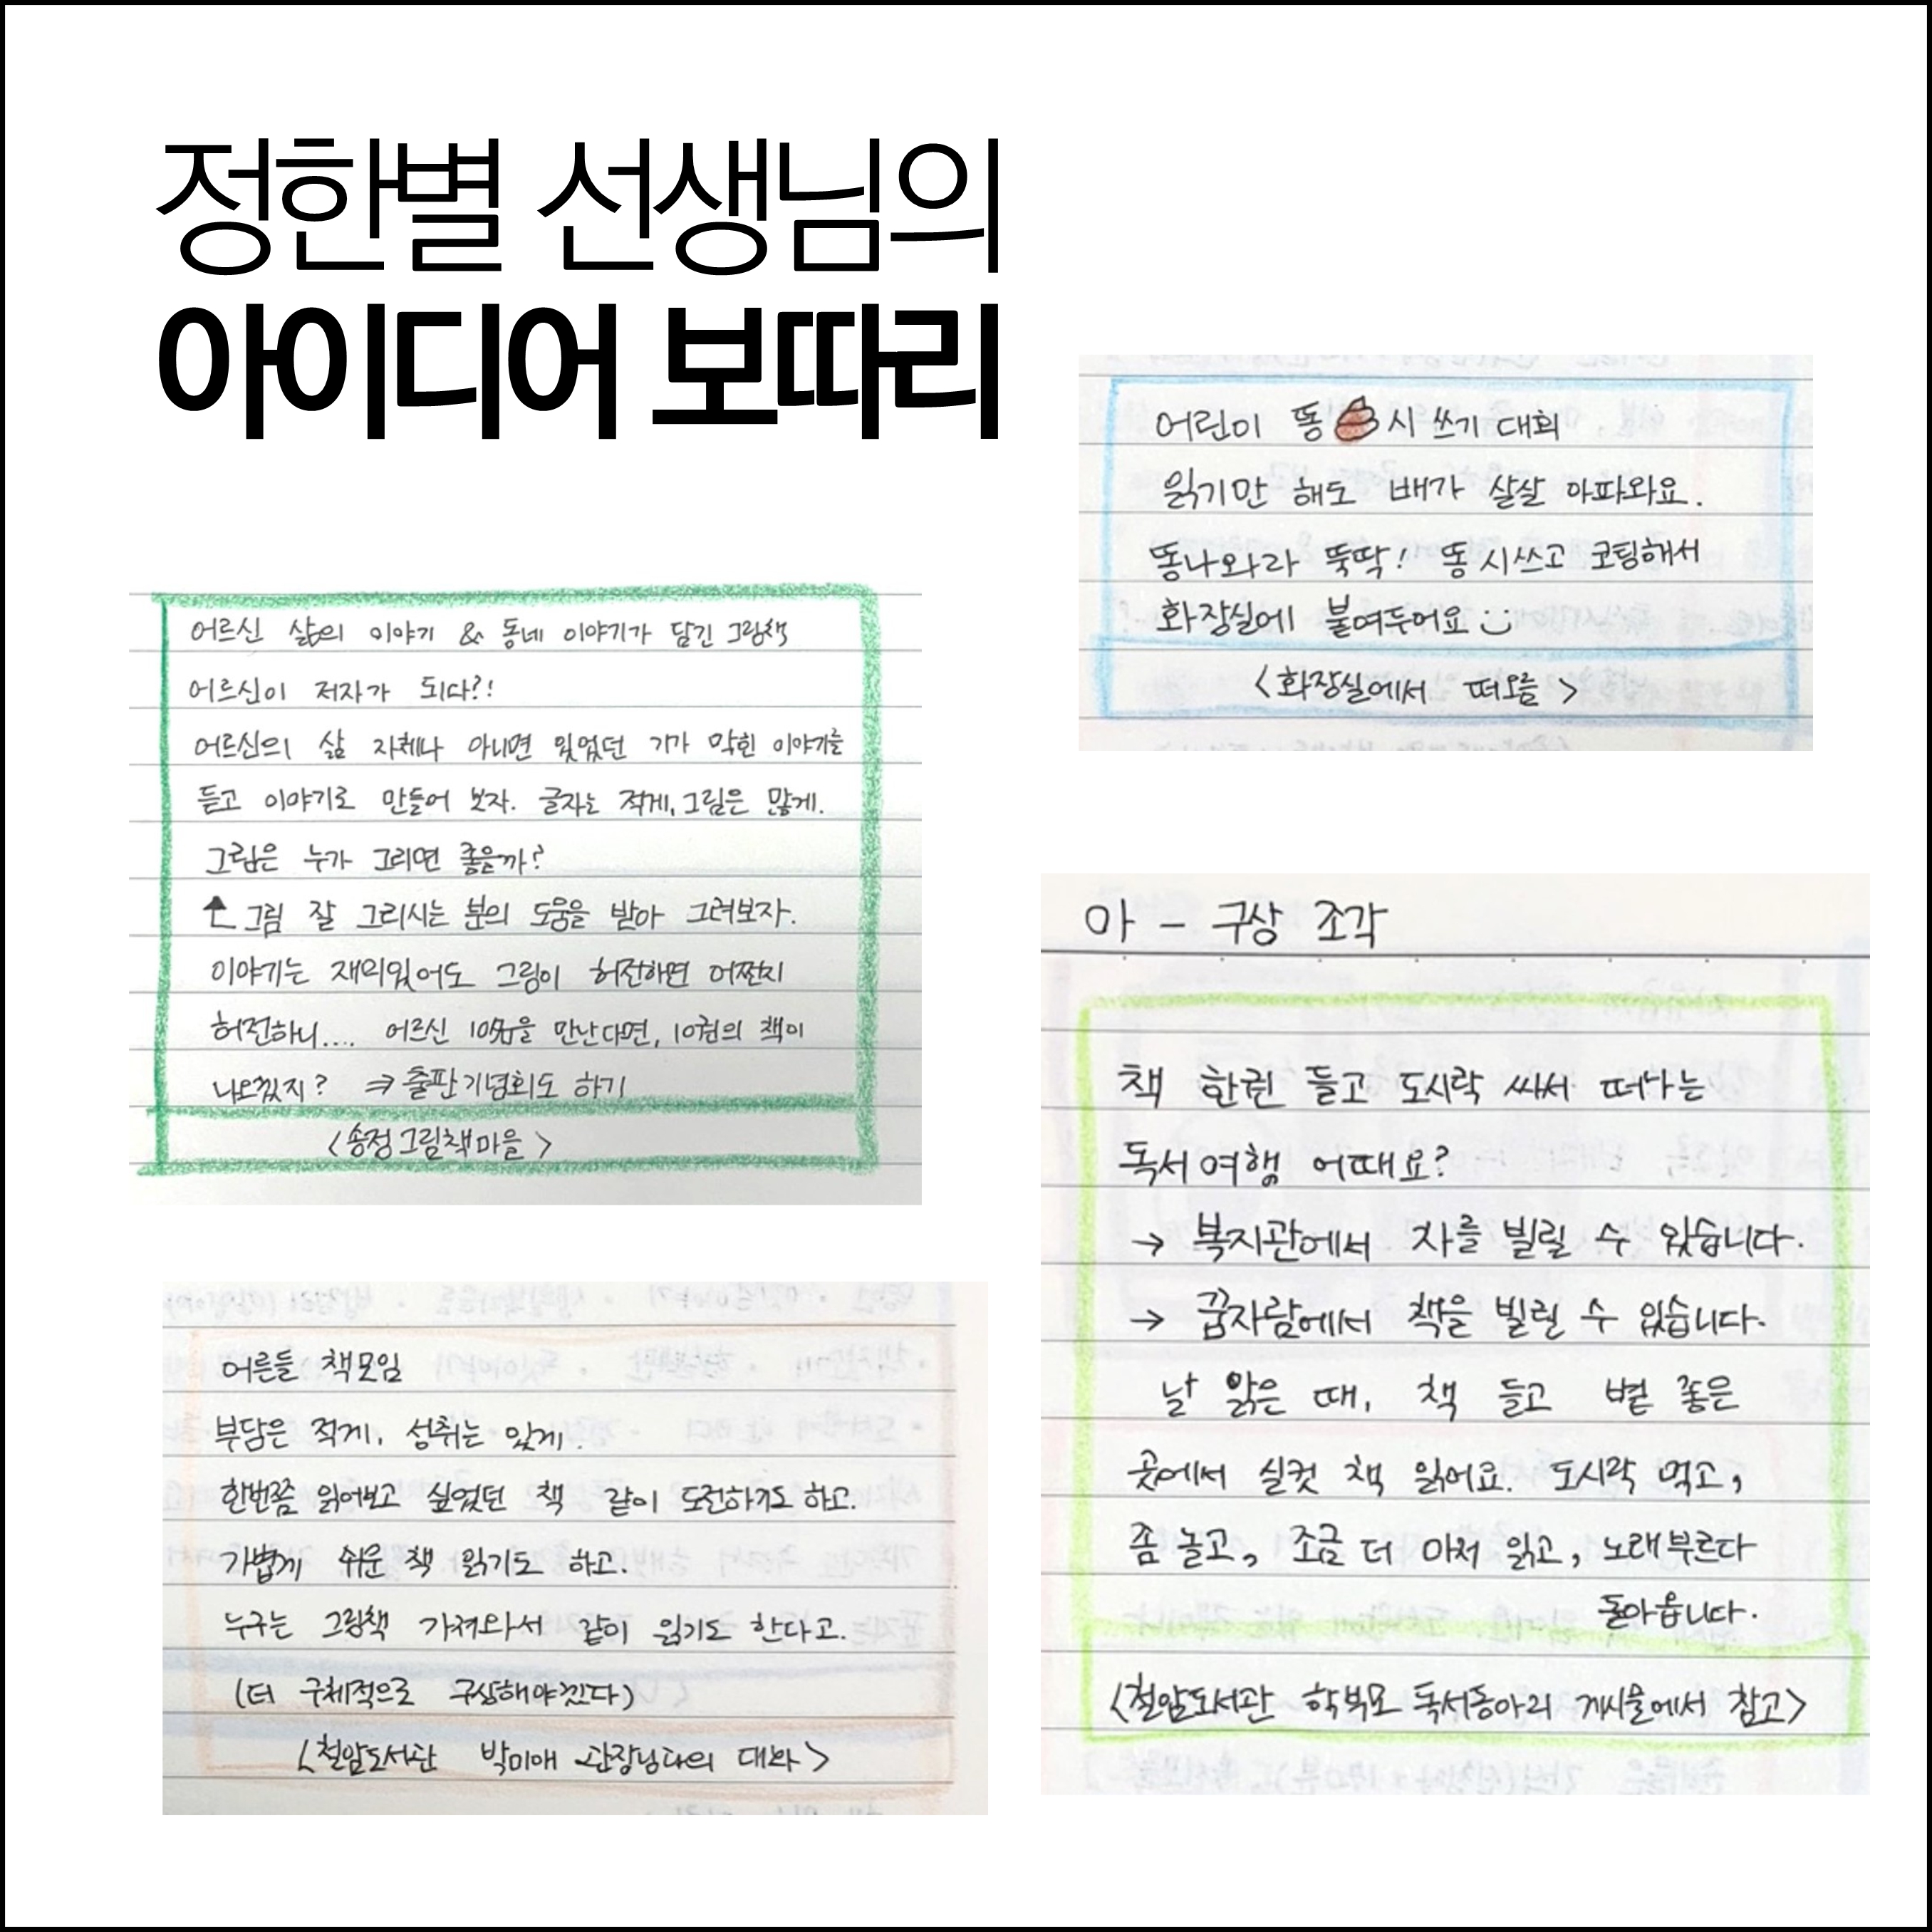 정한별 선생님의
아이디어 보따리
어린이 똥 시 쓰기 대회
읽기만 해도 배가 살살 아파와요.
똥나와라 뚝딱! 똥 시 쓰고 코팅해서
화장실에 붙여두어요
<화장실에서 떠오름>
어르신 삶의 이야기 & 동네 이야기가 담긴 그림책
어르신이 저자가 되다?!
어르신의 삶 자체나 아니면 있었던 기가 막힌 이야기를
듣고 이야기로 만들어 보자. 글자는 적게, 그림은 많게.
그림은 누가 그리면 좋을까?
그림 잘 그리시는 분의 도움을 받아 그려보자.
이야기는 재미있어도 그림이 허전하면 어쩐지
허전하니.... 어르신 10분을 만난다면, 10권의 책이
나오겠지? ⇒ 출판기념회도 하기
<송정그림책마을>
아 - 구상 조각
책 한권 들고 도시락 싸서 떠나는
독서여행 어때요?
→ 복지관에서 차를 빌릴 수 있습니다.
→ 꿈자람에서 책을 빌릴 수 있습니다.
날 맑은 때, 책 들고 볕 좋은
곳에서 실컷 책 읽어요. 도시락 먹고,
좀 놀고, 조금 더 마저 읽고, 노래부르다
돌아옵니다.
<철암도서관 학부모 독서동아리 게시물에서 참고>
어른들 책모임
부담은 적게, 성취는 있게.
한번쯤 읽어보고 싶었던 책 같이 도전하기도 하고.
가볍게 쉬운 책 읽기도 하고.
누구는 그림책 가져와서 같이 읽기도 한다고.
(더 구체적으로 구상해야겠다)
<철암도서관 박미애 관장님과의 대화>